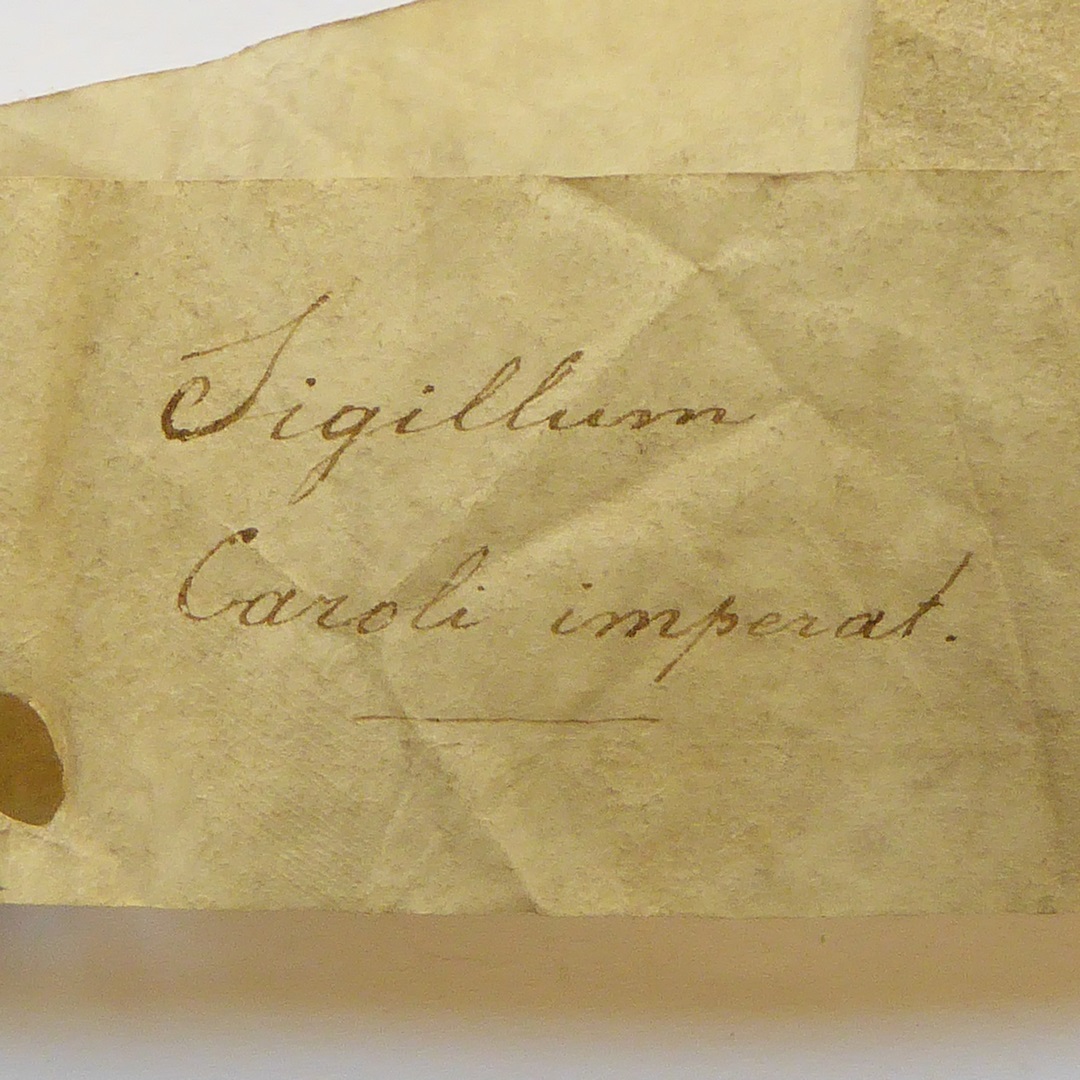 Sigillum
Caroli imperat.